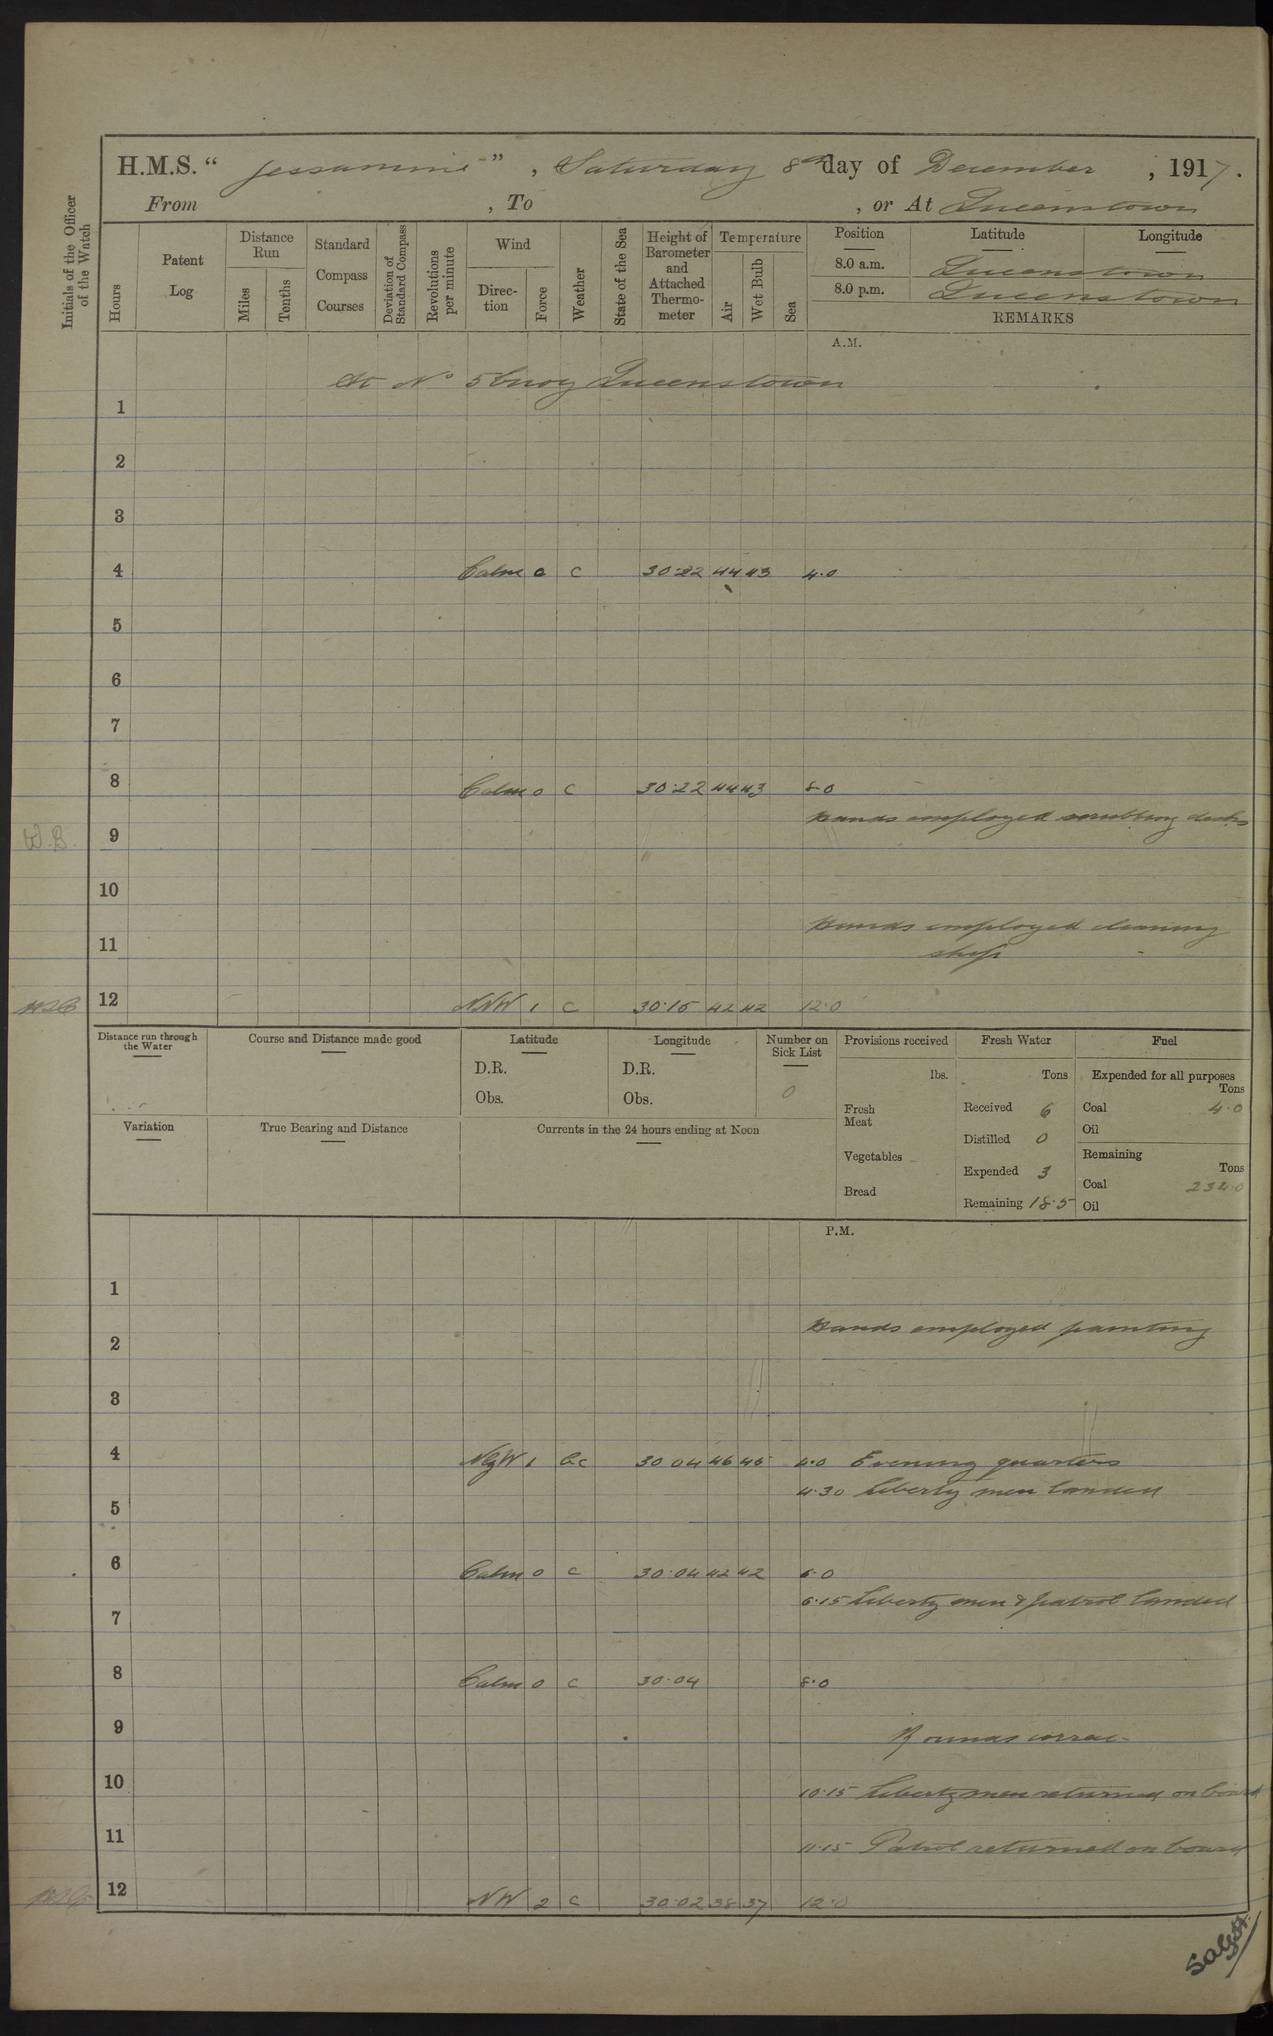 H.M.S. “ Jessamine ” , Saturday 8th day of December , 1917.
From , To , or At Queenstown
Initials of the Officer of the Watch
Hours
Patent Log
Distance Run
Miles
Tenths
Standard Compass Courses
Deviation of Standard Compass
Revolutions per minute
Wind
Direction
Force
Weather
State of the Sea
Height of Barometer and Attached Thermometer
Temperature
Air
Wet Bulb
Sea
Position Latitude Longitude
8.0 a.m. Queenstown
8.0 p.m. Queenstown
REMARKS
A.M.
At No 5 buoy Queenstown
1
2
3
4 Calm 0 c 30·22 44 43 4·0
5
6
7
8 Calm 0 c 30·22 44 43 8·0
Hands employed scrubbing decks
W.B. 9
10
Hands employed cleaning
11 ship
12 NNW 1 c 30·15 42 42 12·0
Distance run through the Water
Course and Distance made good
Latitude
D.R.
Obs.
Longitude
D.R.
Obs.
Number on Sick List
0
Provisions received
lbs.
Fresh Meat
Vegetables
Bread
Fresh Water
Tons
Received 6
Distilled 0
Expended 3
Remaining 18·5
Fuel
Expended for all purposes
Tons
Coal 4·0
Oil
Remaining
Tons
Coal 234·0
Oil
Variation
True Bearing and Distance
Currents in the 24 hours ending at Noon
P.M.
1
Hands employed painting
2
3
4 NbyW 1 bc 30 04 46 45 4·0 Evening quarters
4·30 Liberty men landed
5
6 Calm 0 c 30·04 42 42 6·0
6·15 Liberty men & patrol landed
7
8 Calm 0 c 30·04 8·0
9 Rounds correc
10 10·15 Liberty men returned on board
11 11·15 Patrol returned on board
12 NW 2 c 30·02 38 37 12·0